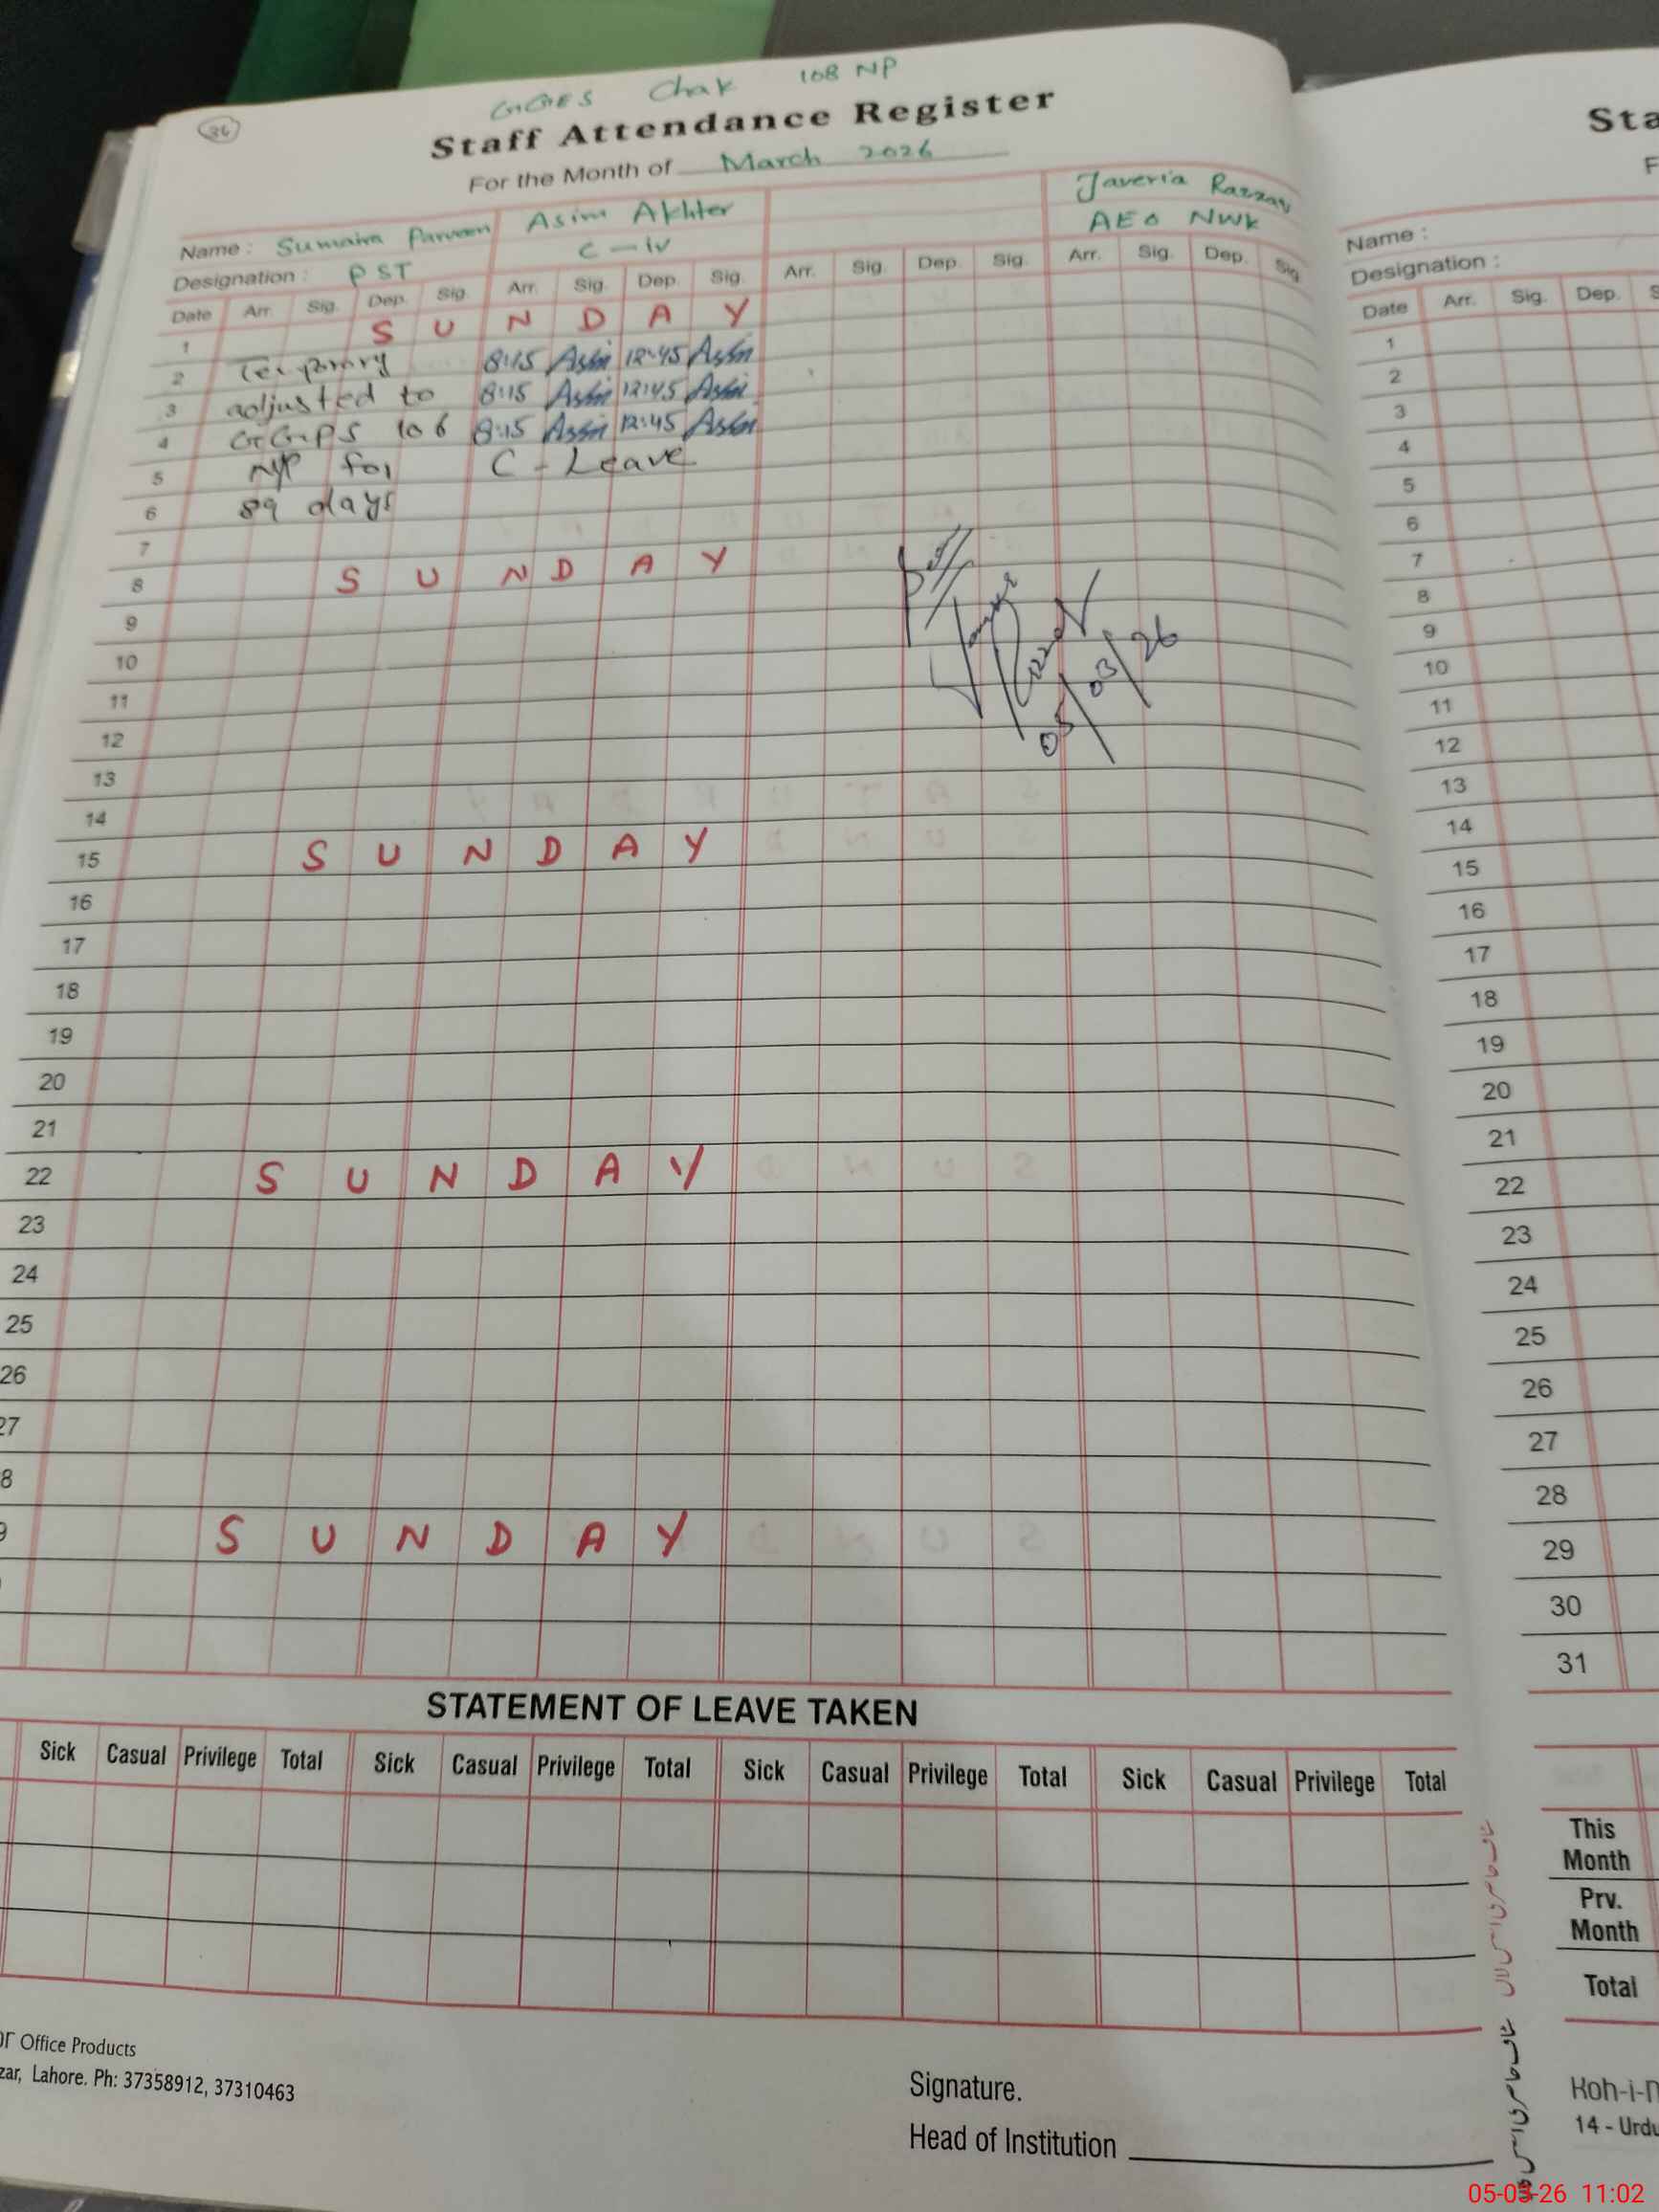 36
GGES Chak 108 NP
Staff Attendance Register
For the Month of March 2026
Name : Sumaira Parveen Asim Akhter Javeria Razzaq
Designation : PST C-iv AEO NWK
Date Arr. Sig. Dep. Sig. Arr. Sig. Dep. Sig. Arr. Sig. Dep. Sig. Arr. Sig. Dep. Sig.
1 S U N D A Y
2 Temporary 8:15 Asim 12:45 Asim
3 adjusted to 8:15 Asim 12:45 Asim
4 GGPS 106 8:15 Asim 12:45 Asim
5 NP for C - Leave
6 89 days
7
8 S U N D A Y
9
10
11
12
13
14
15 S U N D A Y
16
17
18
19
20
21
22 S U N D A Y
23
24
25
26
27
8
9 S U N D A Y
Razzaq
05/03/26
STATEMENT OF LEAVE TAKEN
Sick Casual Privilege Total Sick Casual Privilege Total Sick Casual Privilege Total Sick Casual Privilege Total
Office Products
zar, Lahore. Ph: 37358912, 37310463
Signature.
Head of Institution
Sta
F
Name :
Designation :
Date Arr. Sig. Dep. S
1
2
3
4
5
6
7
8
9
10
11
12
13
14
15
16
17
18
19
20
21
22
23
24
25
26
27
28
29
30
31
This
Month
Prv.
Month
Total
Koh-i-n
14 - Urdu
05-03-26 11:02